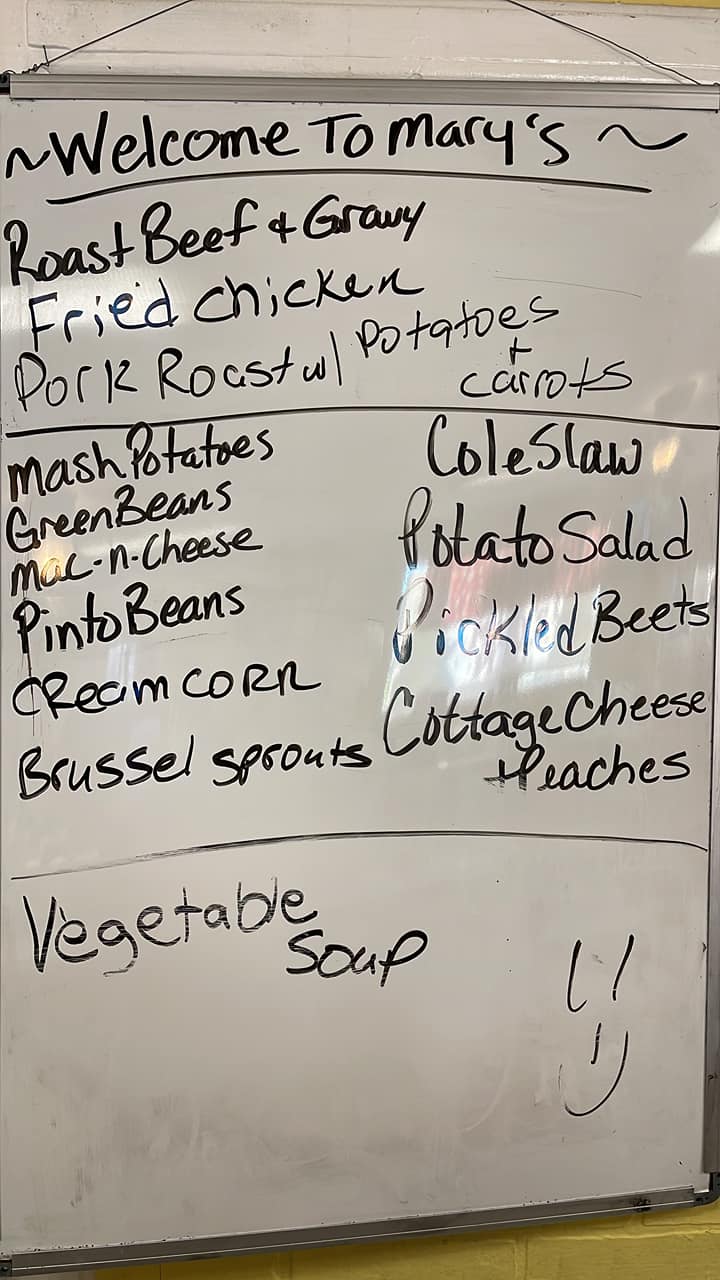 ~Welcome To Mary's~
Roast Beef & Gravy
Fried chicken
Pork Roast w/ Potatoes
+ carrots
Mash Potatoes
Green Beans
Mac-n-Cheese
Pinto Beans
CReam CORn
Brussel sprouts
Cole Slaw
Potato Salad
Pickled Beets
Cottage Cheese
+Peaches
Vegetable
Soup